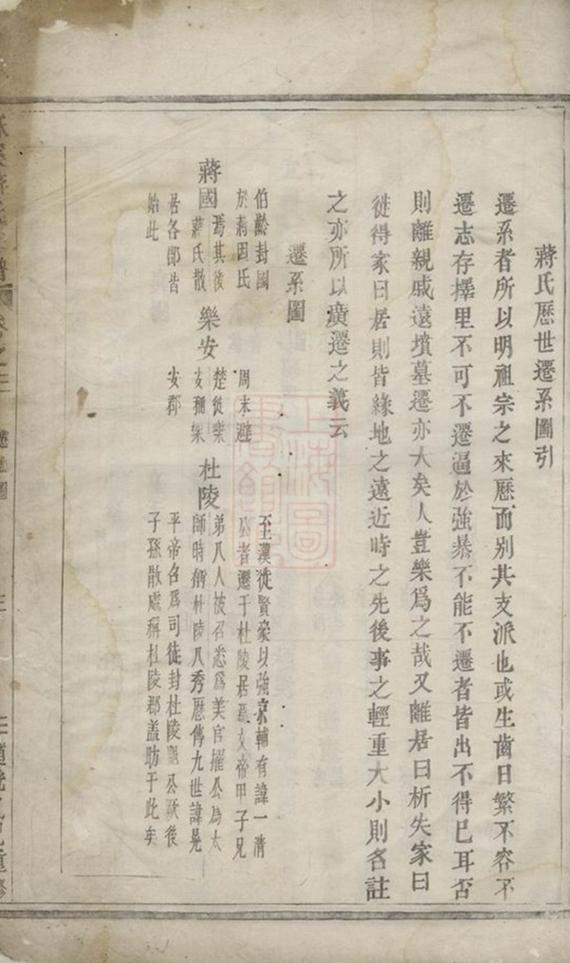 蔣氏歷世遷系圖引
遷系者所以明祖宗之來歷而别其支派也或生齒日繁不容不
遷志存擇里不可不遷逼於強暴不能不遷者皆出不得已耳否
則離親戚遠墳墓遷亦大矣人豈樂爲之哉又離居曰析失家曰
徙得家曰居則皆緣地之遠近時之先後事之輕重大小則各註
之亦所以廣遷之義云
遷系圖
蔣國
伯齡封國
於蔣因氏
焉其後
蔣氏散
居各郡皆
始此
樂安
周末避
楚徙樂
安稱樂
安郡
杜陵
至漢徙賢豪以強京輔有諱一清
公者遷于杜陵居焉文帝甲子兄
弟八人被召悉爲美官擢公為太
師時稱杜陵八秀歷傳九世諱晃
平帝召爲司徒封杜陵公厥後
子孫散處稱杜陵郡盖昉于此矣
上海圖
書館藏
遷系圖